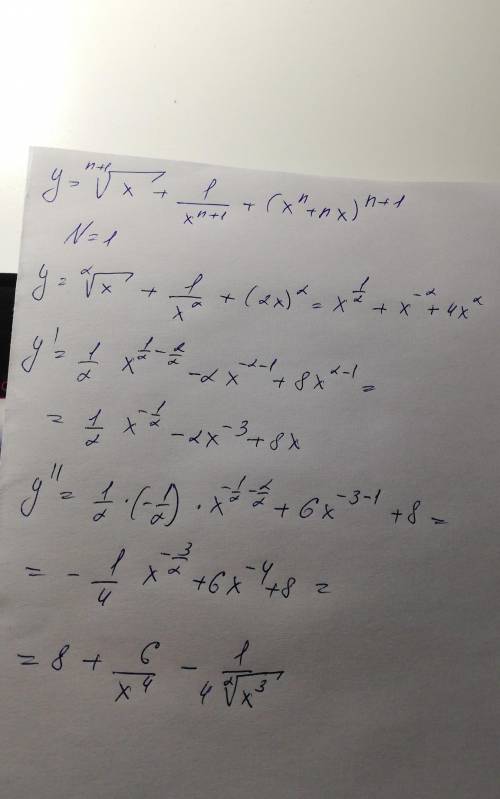 y = ⁿ⁺¹√x + 1/xⁿ⁺¹ + (xⁿ + nx)ⁿ⁺¹
N=1
y = ²√x + 1/x² + (2x)² = x^(1/2) + x^(-2) + 4x²
y' = 1/2 x^(1/2 - 2/2) - 2x^(-2-1) + 8x^(2-1) =
= 1/2 x^(-1/2) - 2x^(-3) + 8x
y'' = 1/2 · (-1/2) · x^(-1/2 - 2/2) + 6x^(-3-1) + 8 =
= - 1/4 x^(-3/2) + 6x^(-4) + 8 =
= 8 + 6/x⁴ - 1/(4 ²√x³)